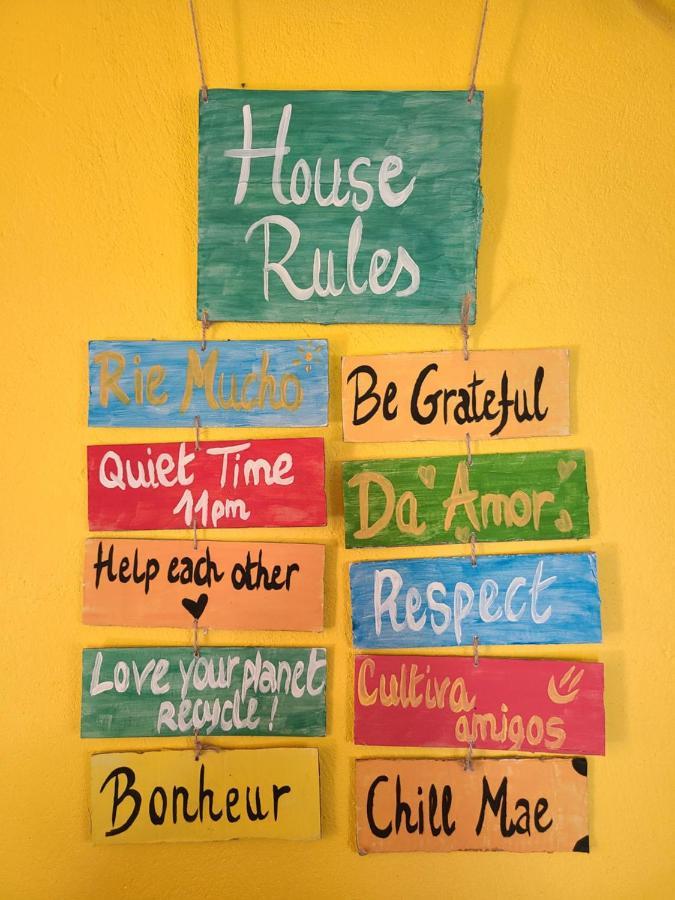 House
Rules
Rie Mucho
Quiet Time
11pm
Help each other
Love your planet
recycle!
Bonheur
Be Grateful
Da Amor
Respect
Cultiva
amigos
Chill Mae